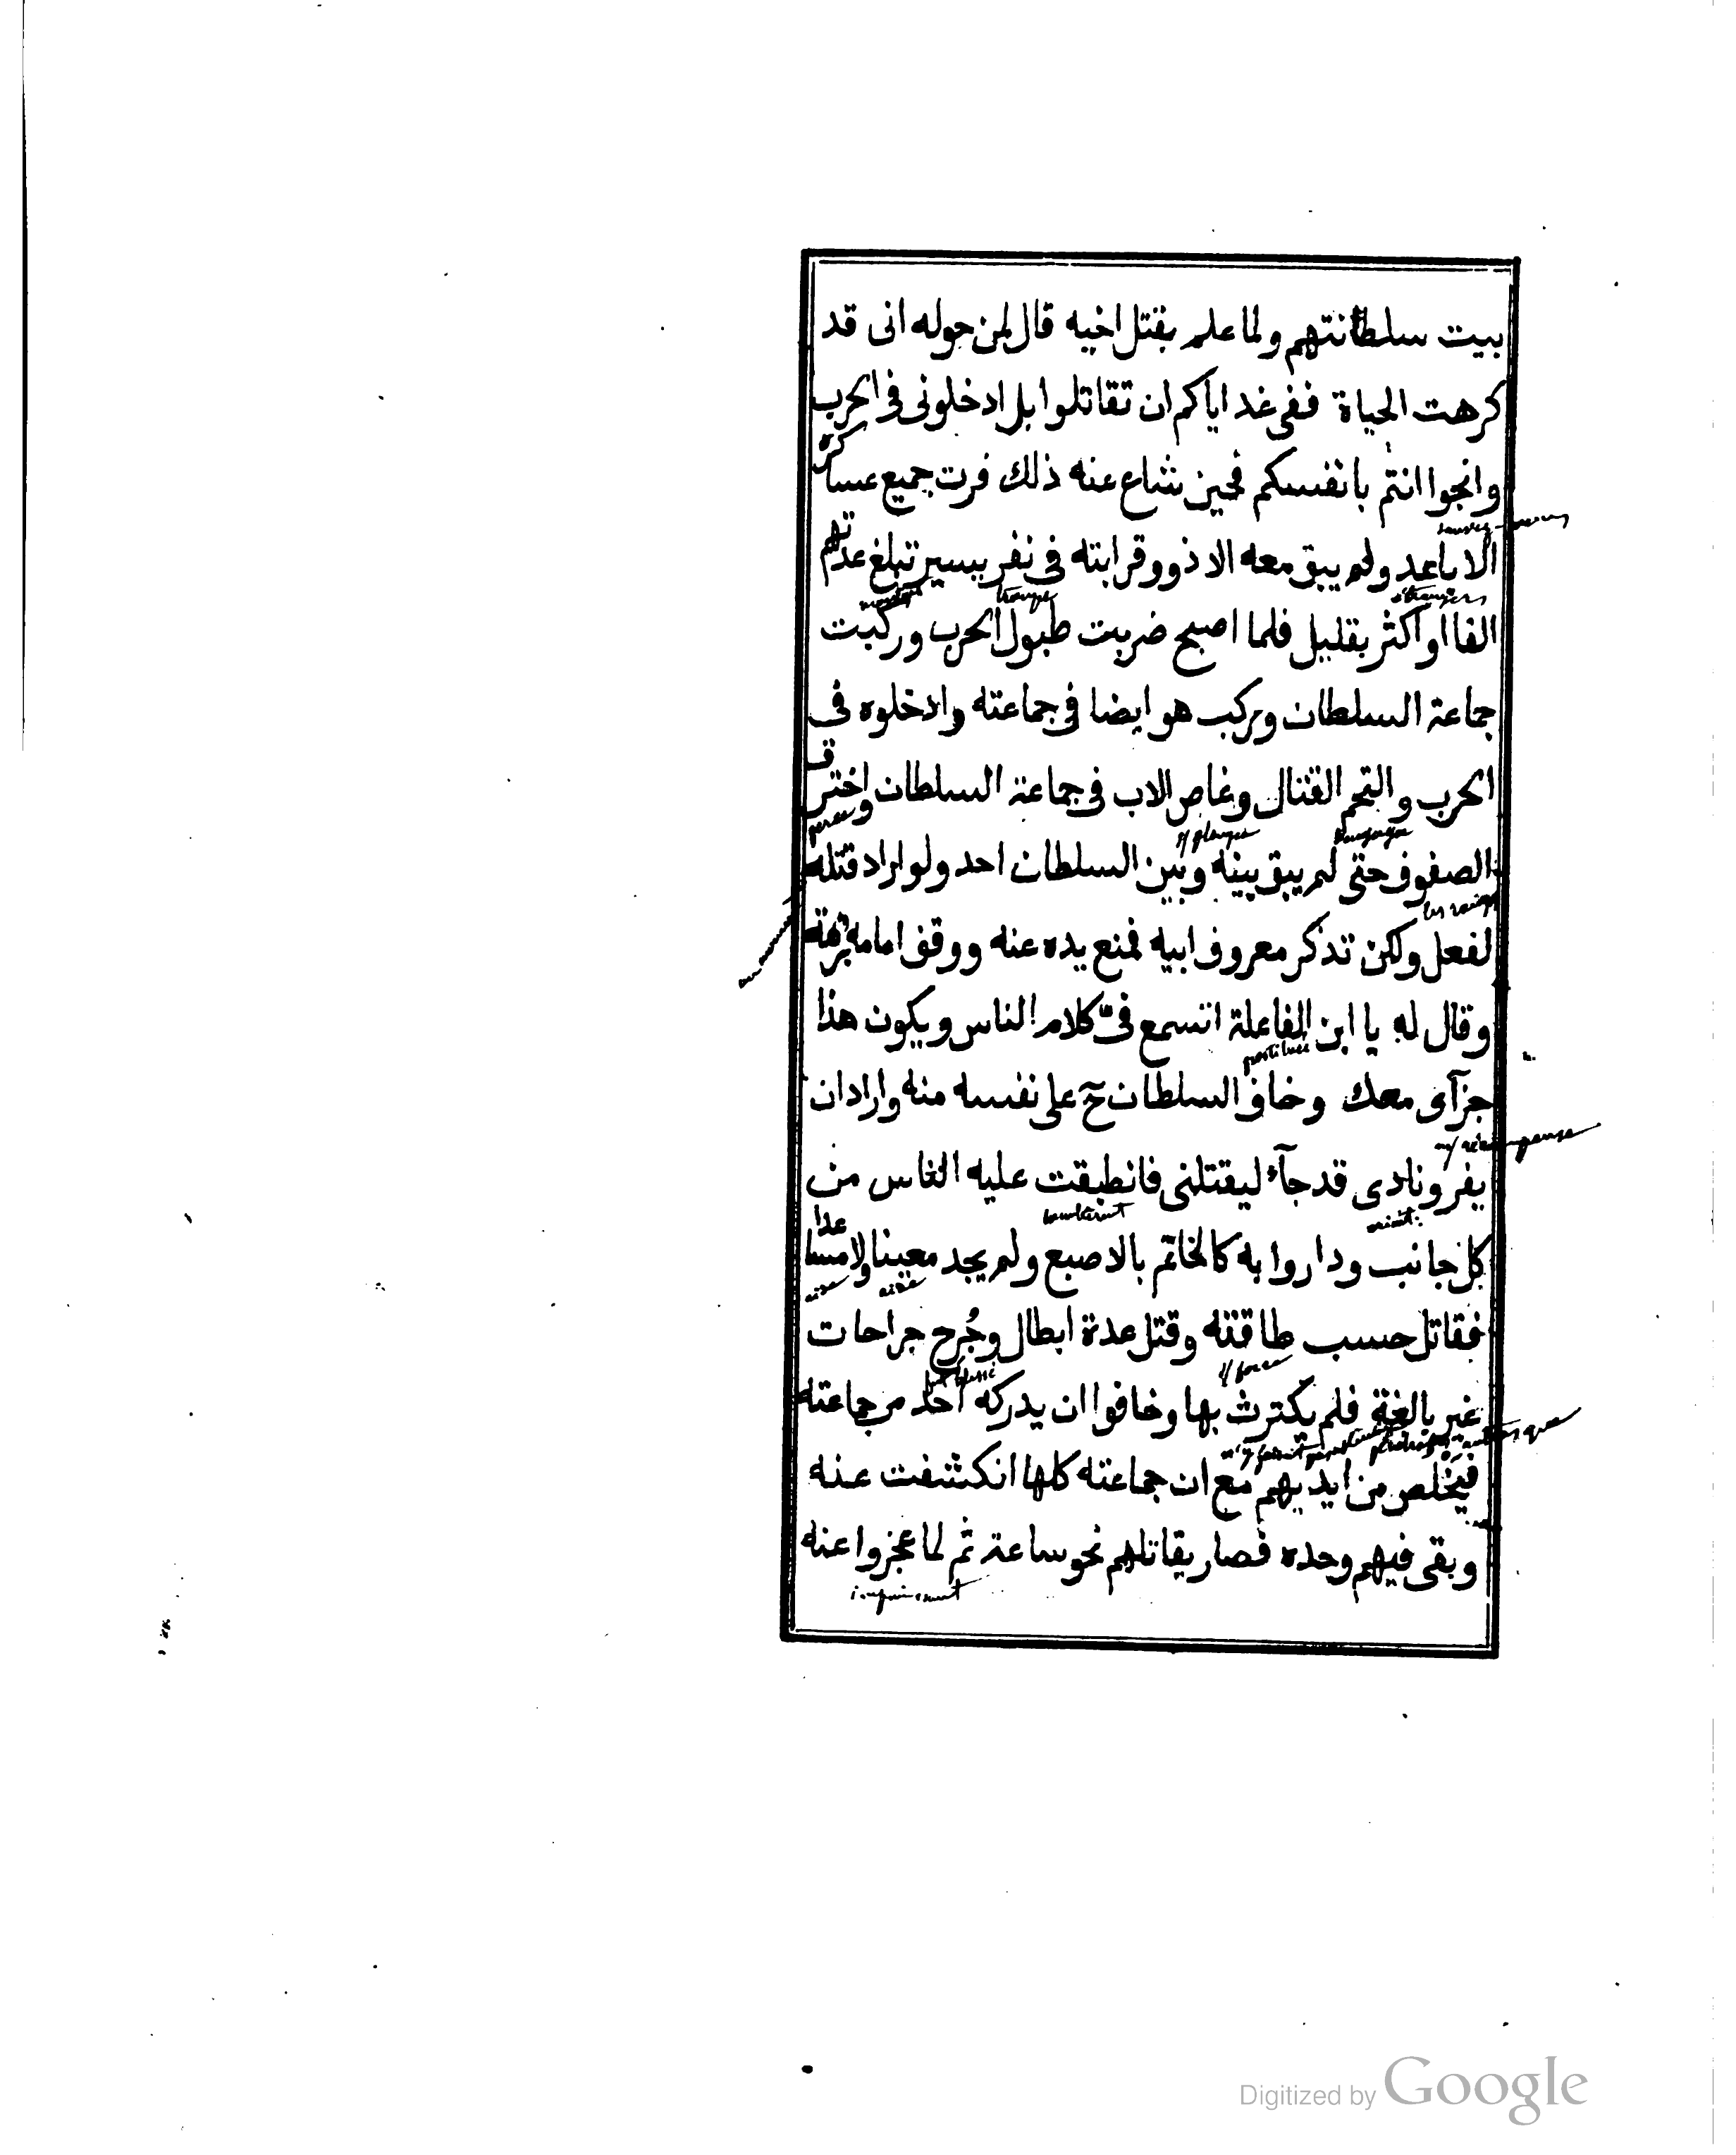 بيت سلطانتهم ولما علم بقتل اخيه قال لمن حوله انى قد
كرهت الحياة ففى غد اياكم ان تقاتلوا بل ادخلونى فى الحرب
وانجوا انتم بانفسكم فحين شاع عنه ذلك فرت جميع عساكره
الاباعد ولم يبق معه الا ذوو قرابته فى نفر يسير تبلغ عدتهم
الفا او اكثر بقليل فلما اصبح ضربت طبول الحرب وركبت
جماعة السلطان وركب هو ايضا فى جماعته وادخلوه فى
الحرب والتحم القتال وغاص الاب فى جماعة السلطان واخترق
الصفوف حتى لم يبق بينه وبين السلطان احد ولو اراد قتله
لفعل ولكن تذكر معروف ابيه فمنع يده عنه ووقف امامه برهة
وقال له يا ابن الفاعلة اتسمع فىّ كلام الناس ويكون هذا
جزآى معك وخاف السلطان حٓ على نفسه منه واراد ان
يفر ونادى قد جآء ليقتلنى فانطبقت عليه الناس من
كل جانب وداروا به كالخاتم بالاصبع ولم يجد معينا ولا مساعدا
فقاتل حسب طاقته وقتل عدة ابطال وجُرح جراحات
غير بالغة فلم يكترث بها وخافوا ان يدركه احد من جماعته
فيخلص من ايديهم مع ان جماعته كلها انكشفت عنه
وبقى فيهم وحده فصار يقاتلهم نحو ساعة ثم لما عجزوا عنه
étrangers
troupe
il plongea
prostituée
aide
il force
fut blessé
Digitized by Google